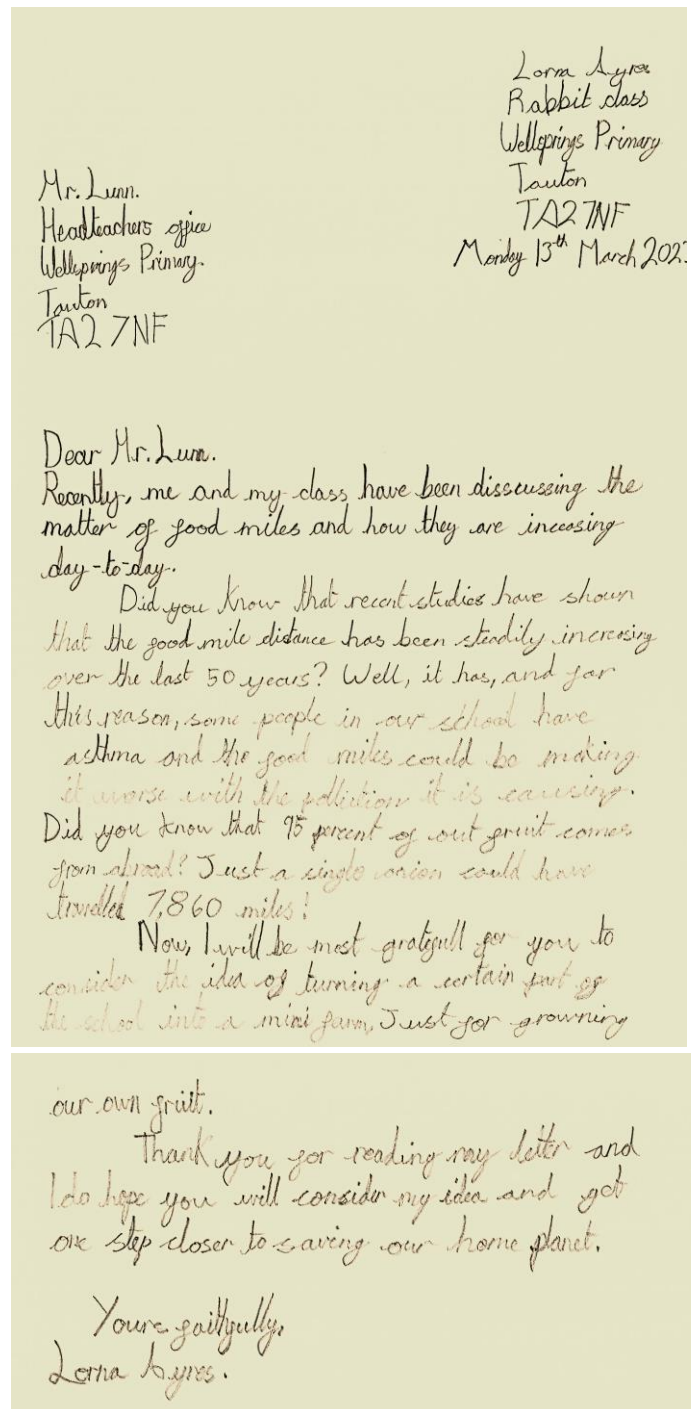 Lorna Ayres
Rabbit class
Wellsprings Primary
Tauton
TA2 7NF
Monday 13th March 2023
Mr. Lunn.
Headteachers office
Wellsprings Primary.
Tauton
TA2 7NF
Dear Mr. Lunn.
Recently, me and my class have been disscussing the
matter of food miles and how they are inceasing
day-to-day.
Did you know that recent studies have shown
that the food mile distance has been steadily increasing
over the last 50 years? Well, it has, and for
this reason, some people in our school have
asthma and the food miles could be making
it worse with the pollution it is causing.
Did you know that 95 percent of out fruit comes
from abroad? Just a single onion could have
travelled 7,860 miles!
Now, I will be most gratefull for you to
consider the idea of turning a certain part of
the school into a mini farm, Just for growning
our own fruit.
Thank you for reading my letter and
I do hope you will consider my idea and get
one step closer to saving our home planet.
Yours faithfully,
Lorna Ayres.